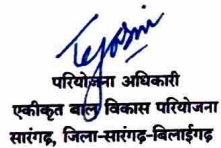 Tejasvi
परियोजना अधिकारी
एकीकृत बाल विकास परियोजना
सारंगढ़, जिला-सारंगढ़-बिलाईगढ़